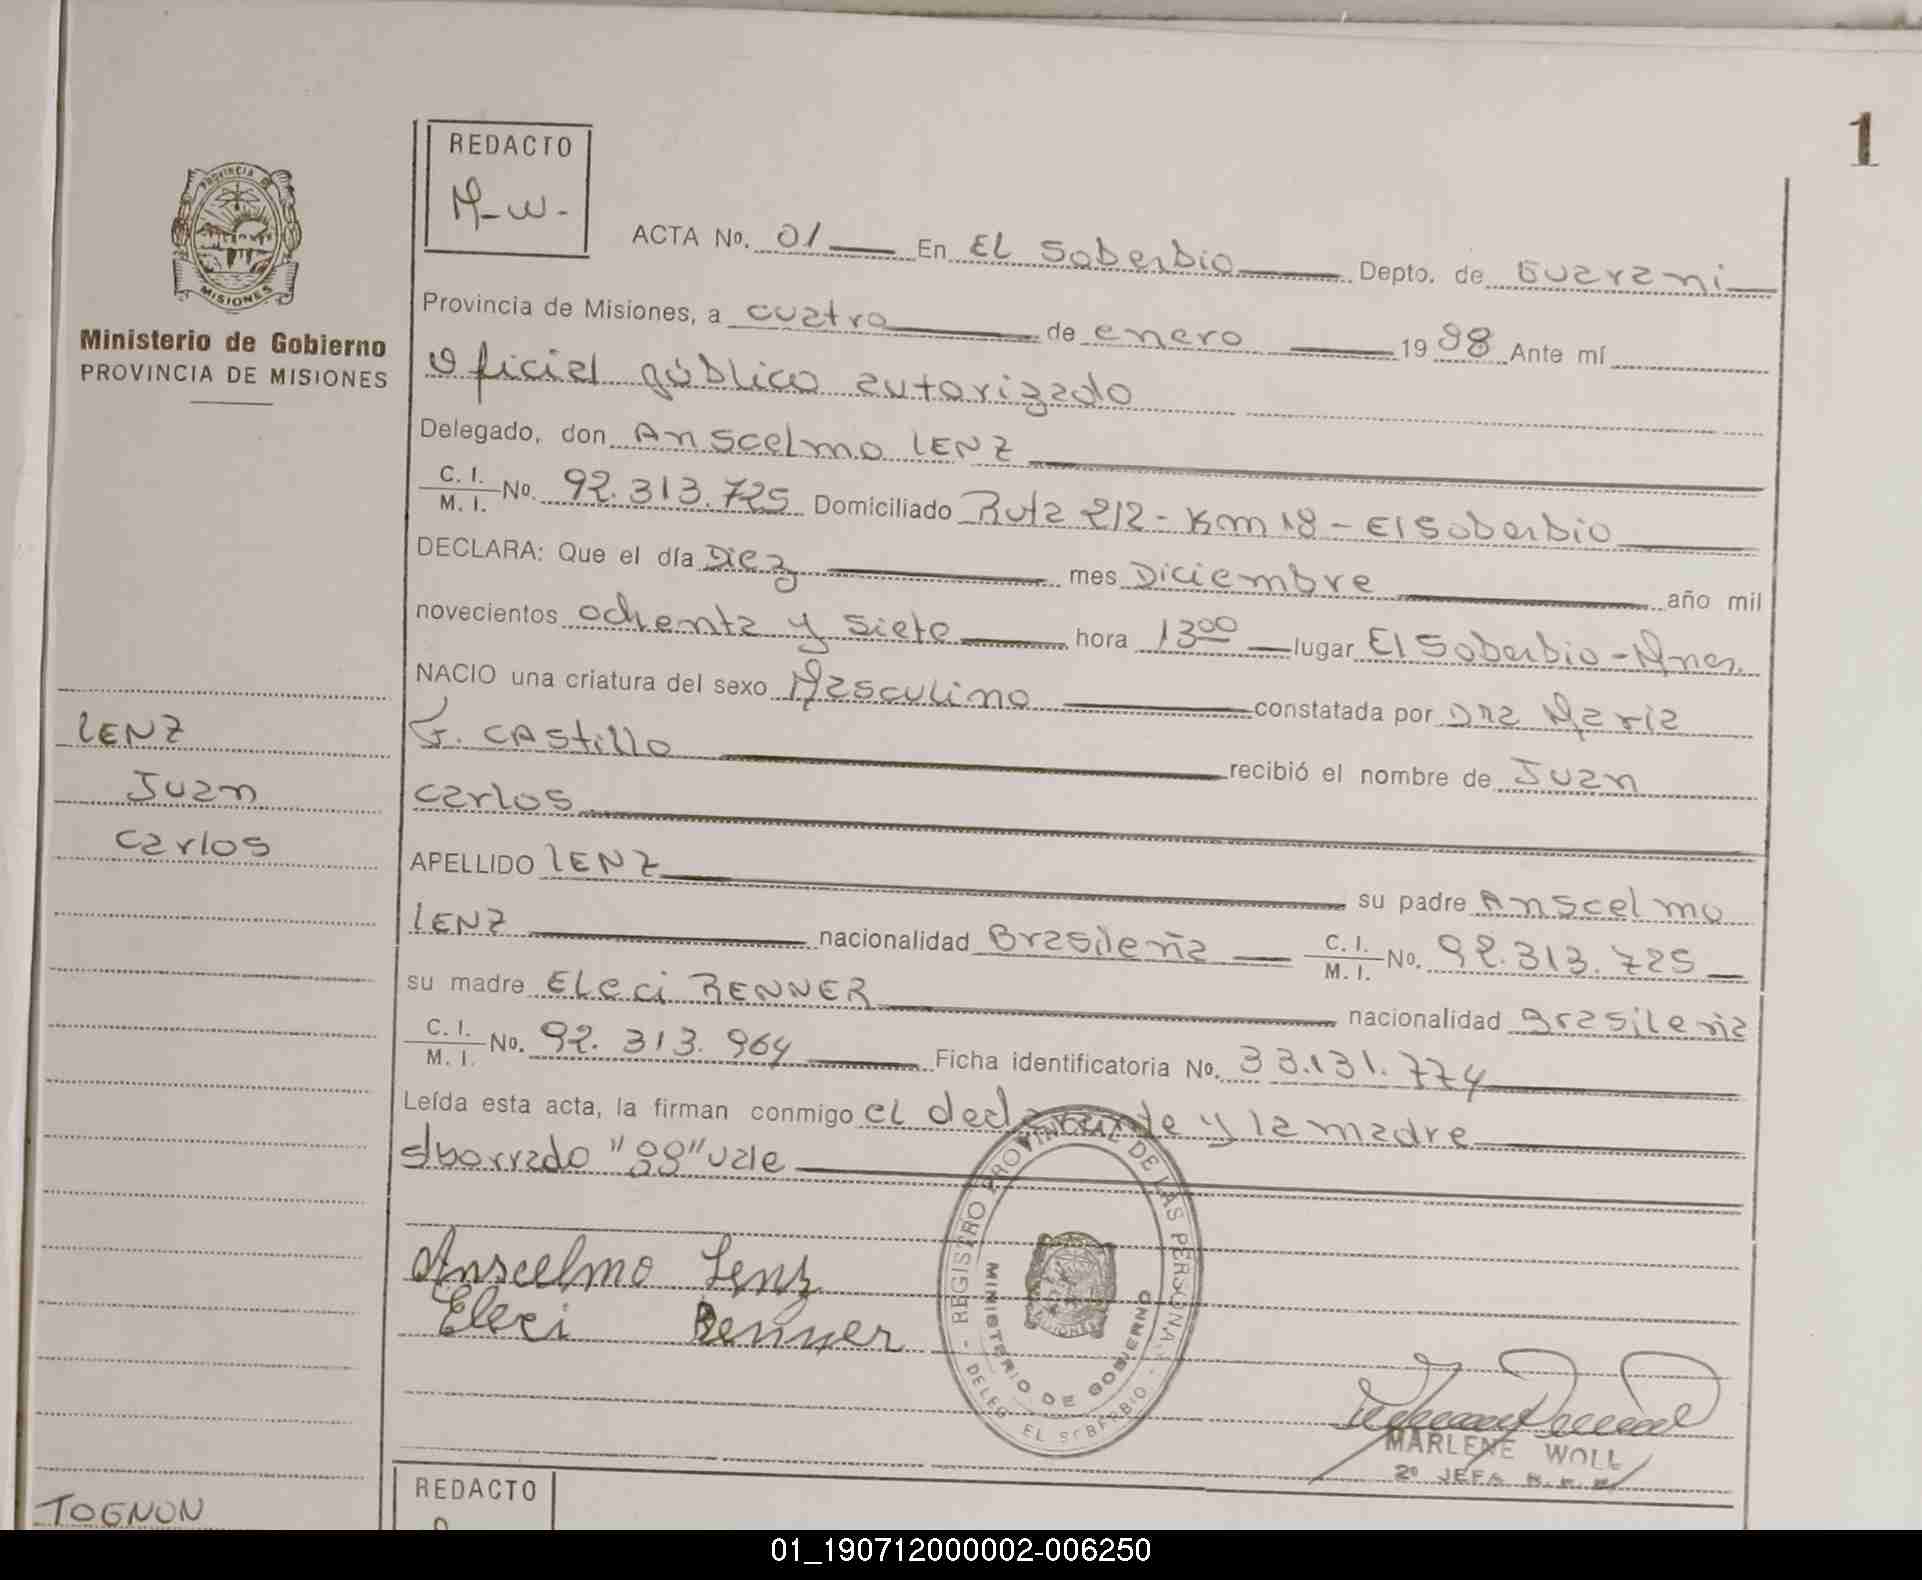 1
REDACTO
M-W-
PROVINCIA DE
MISIONES
Ministerio de Gobierno
PROVINCIA DE MISIONES
ACTA No. 01 En El Soberbio Depto. de Guarani
Provincia de Misiones, a cuatro de enero 1988 Ante mí
Oficial público autorizado
Delegado, don Anscelmo LENZ
C. I. / M. I. No. 92.313.725 Domiciliado Ruta 212 - Km 18 - El Soberbio
DECLARA: Que el día Diez mes Diciembre año mil
novecientos ochenta y siete hora 1300 lugar El Soberbio - Mnes.
NACIO una criatura del sexo Masculino constatada por Dra Maria
F. Castillo recibió el nombre de Juan
Carlos
APELLIDO LENZ su padre Anscelmo
LENZ nacionalidad Brasileña C. I. / M. I. No. 92.313.725
su madre Eleci RENNER nacionalidad Brasileña
C. I. / M. I. No. 92.313.964 Ficha identificatoria No. 33.131.774
Leída esta acta, la firman conmigo el declarante y la madre
S/borrado "88" vale
LENZ
Juan
Carlos
Anscelmo Lenz
Eleci Renner
REGISTRO PROVINCIAL DE LAS PERSONAS
MINISTERIO DE GOBIERNO
DELEG. EL SOBERBIO
MISIONES
MARLENE WOLL
2º JEFA
TOGNON
REDACTO
01_190712000002-006250